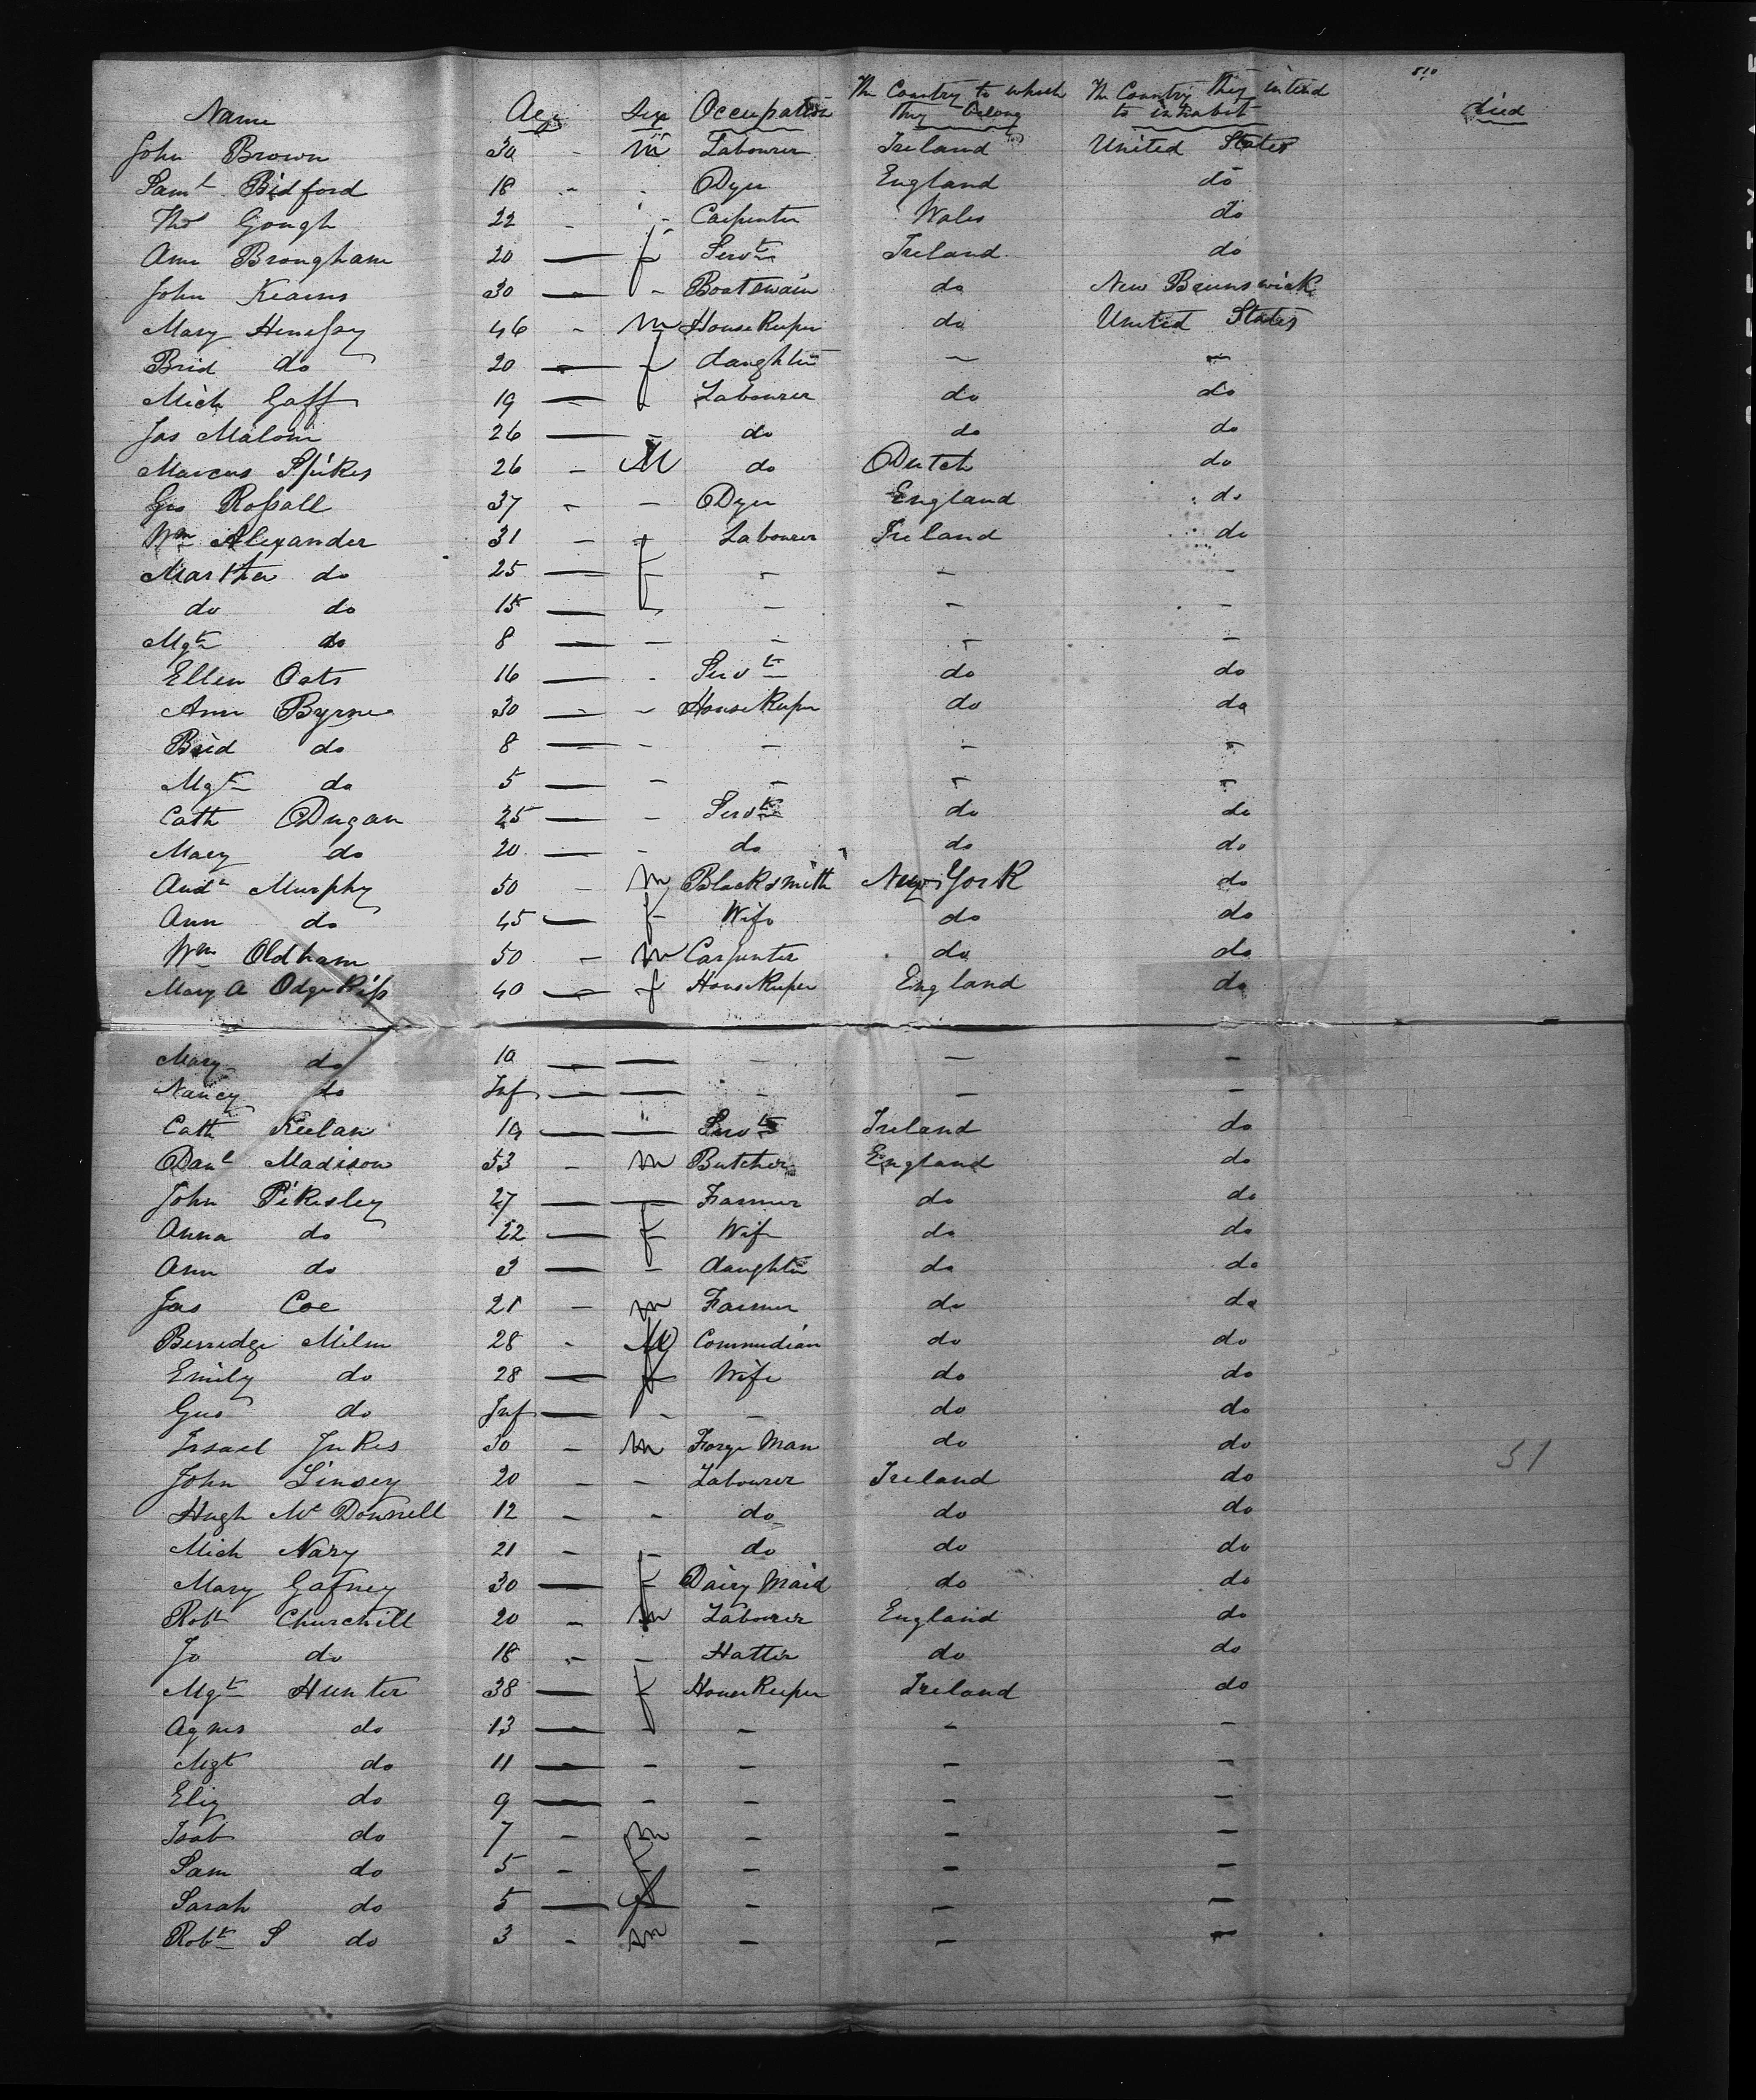 510
Name Age Sex Occupation The Country to which they belong The Country they intend to inhabit died
John Brown 30 - m Labourer Ireland United States
Saml Bidford 18 - - Dyer England do
Thos Gough 22 - - Carpenter Wales do
Ann Brougham 20 — f Servt Ireland do
John Kearns 30 — - Boatswain do New Brunswick
Mary Henessy 46 - m House Keeper do United States
Brid do 20 — f daughter — —
Mich Gaff 19 — Labourer do do
Jas Malom 26 — - do do do
Marcus Spikes 26 - M do Dutch do
Geo Rossall 37 - - Dyer England do
Wm Alexander 31 - - Labourer Ireland do
Martha do 25 — f - - -
do do 15 — - - -
Mgt do 8 — - - - -
Ellen Oats 16 — - Servt do do
Ann Byrne 30 — - House Keeper do do
Brid do 8 — - - - -
Mgt do 5 — - - - -
Cath Dugan 25 — - Servt do do
Mary do 20 — - do do do
Andw Murphy 50 - m Blacksmith New York do
Ann do 45 — f Wife do do
Wm Oldham 50 - m Carpenter do do
Mary A 40 — f House Keeper England do
Mary do 10 — — - - -
Nancy do Inf — — - - -
Cath Keelan 19 — — Servt Ireland do
Danl Madison 53 - m Butcher England do
John Pikesley 27 — — Farmer do do
Anna do 22 — f Wife do do
Ann do 3 — - daughter do do
Jas Coe 21 - m Farmer do do
Berridge Miln 28 - M Commudian do do
Emily do 28 — f Wife do do
Gus do Inf — - - do do
Israel Jukes 30 - m Forge Man do do
51
John Linsey 20 - - Labourer Ireland do
Hugh Mc Donnell 12 - - do do do
Mich Nary 21 - - do do do
Mary Gafney 30 — f Dairy Maid do do
Robt Churchill 20 - m Labourer England do
Jo do 18 - - Hatter do do
Mgt Hunter 38 — f House Keeper Ireland do
Agnes do 13 — - - -
Mgt do 11 — - - - -
Eliz do 9 — - - - -
Isab do 7 - m - - -
Sam do 5 - - - - -
Sarah do 5 — f - - -
Robt S do 3 - m - - -